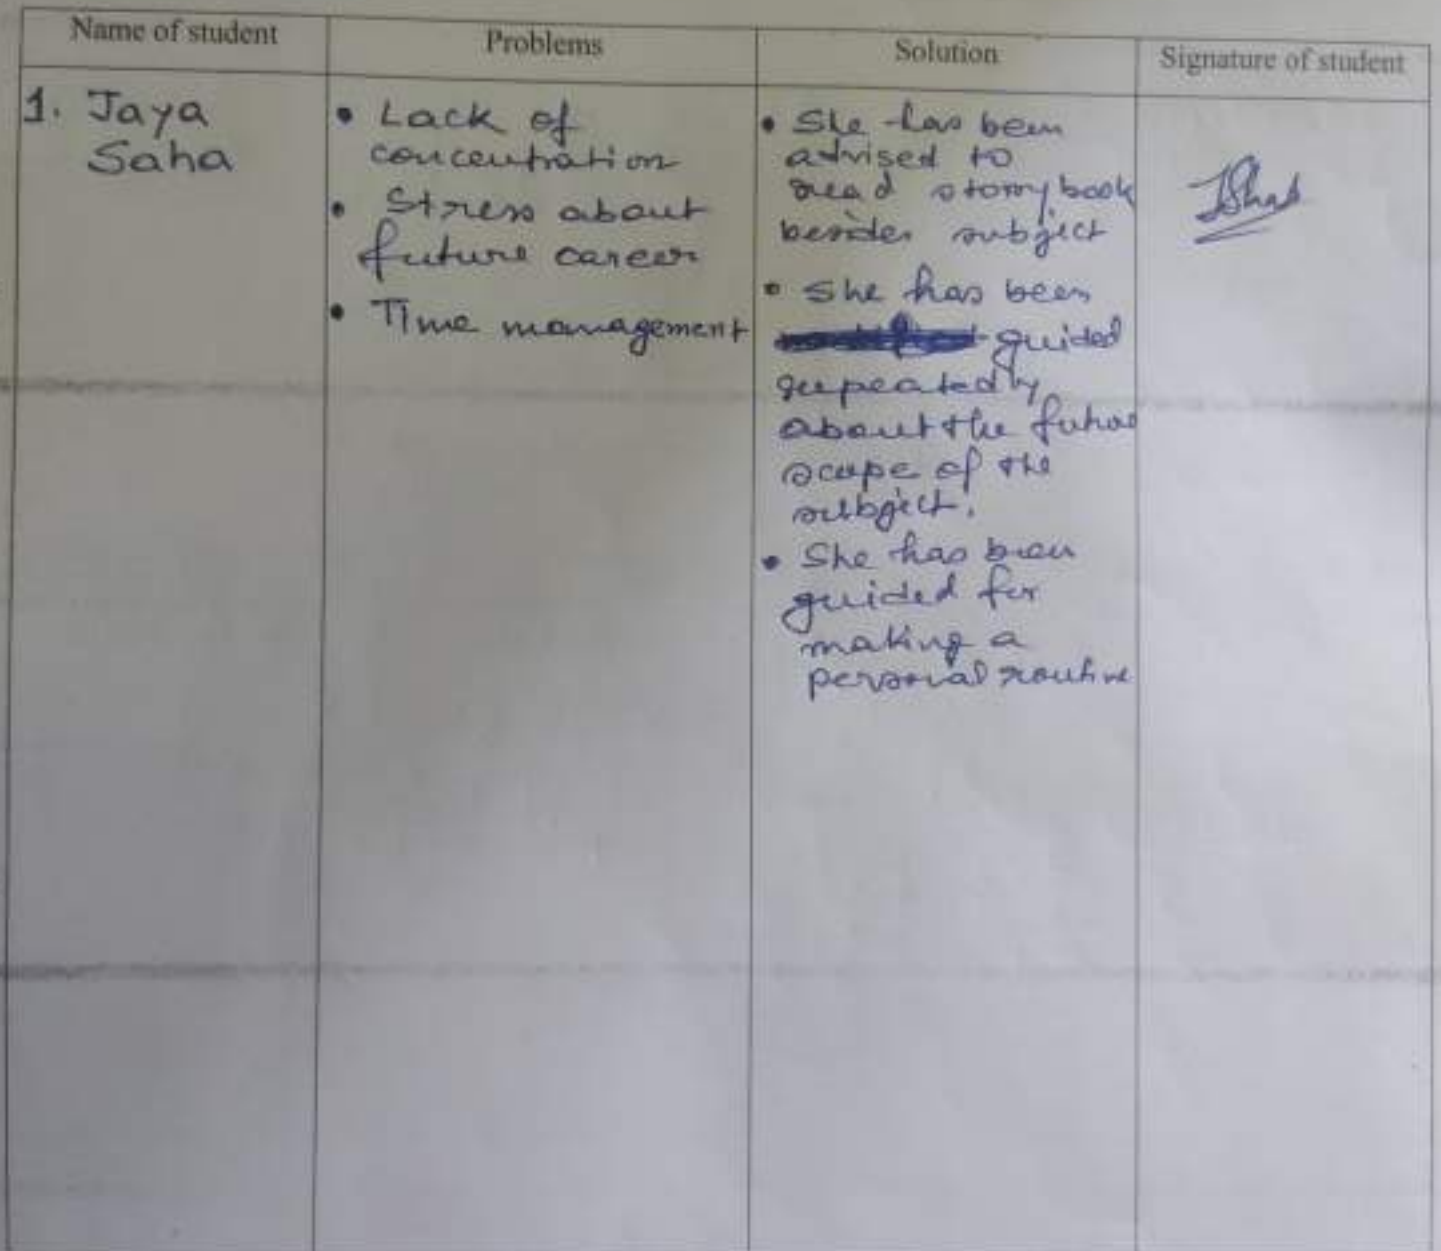 Name of student
Problems
Solution
Signature of student
1. Jaya
Saha
• Lack of
concentration
• Stress about
future career
• Time management
• She has been
advised to
read storybook
besides subject
• She has been
guided
repeatedly
about the future
scope of the
subject.
• She has been
guided for
making a
personal routine